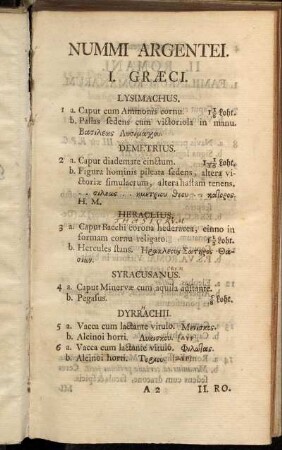 NUMMI ARGENTEI.
I. GRÆCI.
LYSIMACHUS.
1 a. Caput cum Ammonis cornu. Loht.
b. Pallas sedens cum victoriola in manu.
Βασιλεως Λυσιμαχου.
DEMETRIUS.
2 a. Caput diademate cinctum. Loht.
b. Figura hominis pileata sedens, altera
victoriæ simulacrum, altera hastam tenens.
H. M.
HERACLIUS.
3 a. Caput Bacchi corona hederacea, cinno in
formam cornu religato. Loht.
b. Hercules stans.
SYRACUSANUS.
4 a. Caput Minervæ cum aquila adstante.
b. Pegasus. Loht.
DYRRACHII.
5 a. Vacca cum lactante vitulo.
b. Alcinoi horti.
6 a. Vacca cum lactante vitulo.
b. Alcinoi horti.
A 2 II. RO.